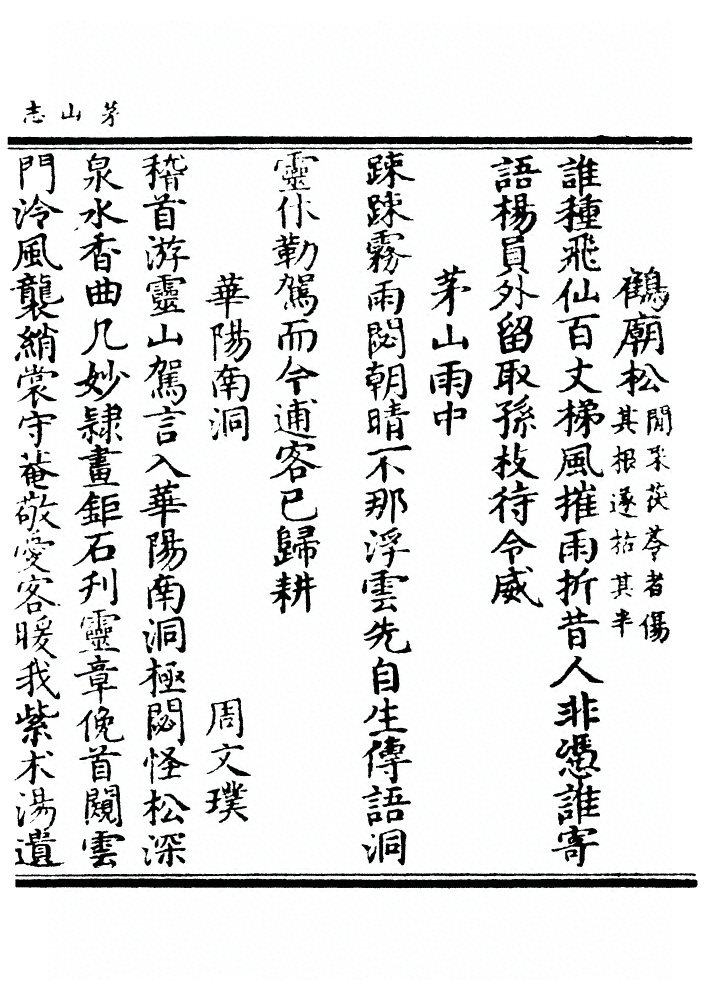 茅山志
鶴廟松閒采茯苓者傷其根遂枯其半
誰種飛仙百丈梯風摧雨折昔人非憑誰寄
語楊員外留取孫枝待令威
茅山雨中
踈踈霧雨閟朝晴不那浮雲先自生傳語洞
靈休勒駕而今逋客已歸耕
華陽南洞 周文璞
稽首游靈山駕言入華陽南洞極閟怪松深
泉水香曲几妙隷畫鉅石刋靈章俛首闚雲
門泠風襲綃裳守菴敬愛客暖我紫朮湯遺